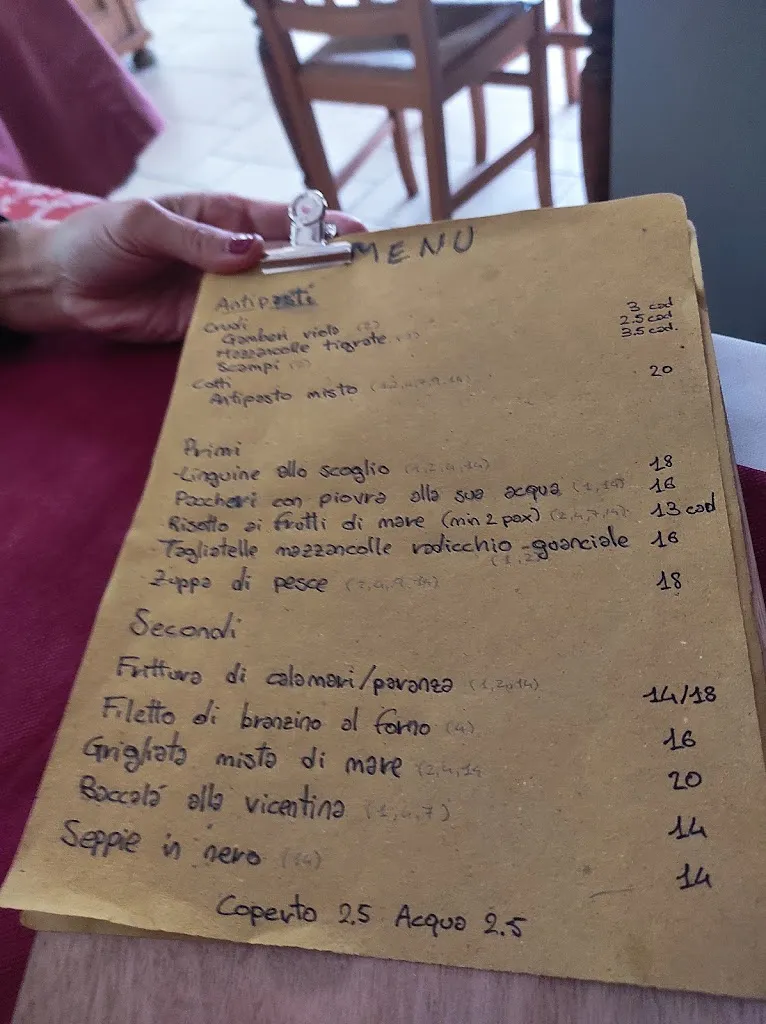 MENU
Antipasti
Crudi
Gamberi viola (2) 3 cad
Mazzancolle tigrate 2.5 cad
Scampi 3.5 cad.
Cotti
Antipasto misto 20
Primi
Linguine allo scoglio (1,2,4,14) 18
Paccheri con piovra alla sua acqua (1,14) 16
Risotto ai frutti di mare (min 2 pax) (2,4,7,14) 13 cad
Tagliatelle mazzancolle radicchio-guanciale 16
(1,2)
Zuppa di pesce (2,4,9,14) 18
Secondi
Frittura di calamari/paranza (1,2,14) 14/18
Filetto di branzino al forno (4) 16
Grigliata mista di mare (2,4,14 20
Baccalá alla vicentina (1,4,7) 14
Seppie in nero (14) 14
Coperto 2.5 Acqua 2.5